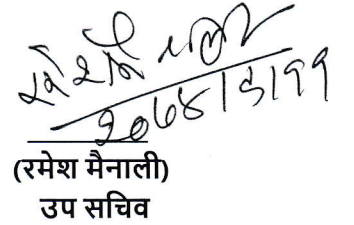 २०७४।३।११
(रमेश मैनाली)
उप सचिव